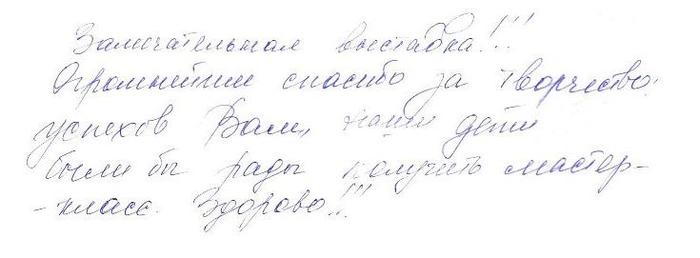 Замечательная выставка!!!
Огромнейшее спасибо за творчество.
успехов Вам, наши дети
были бы рады получить мастер-
-класс. Здорово!!!